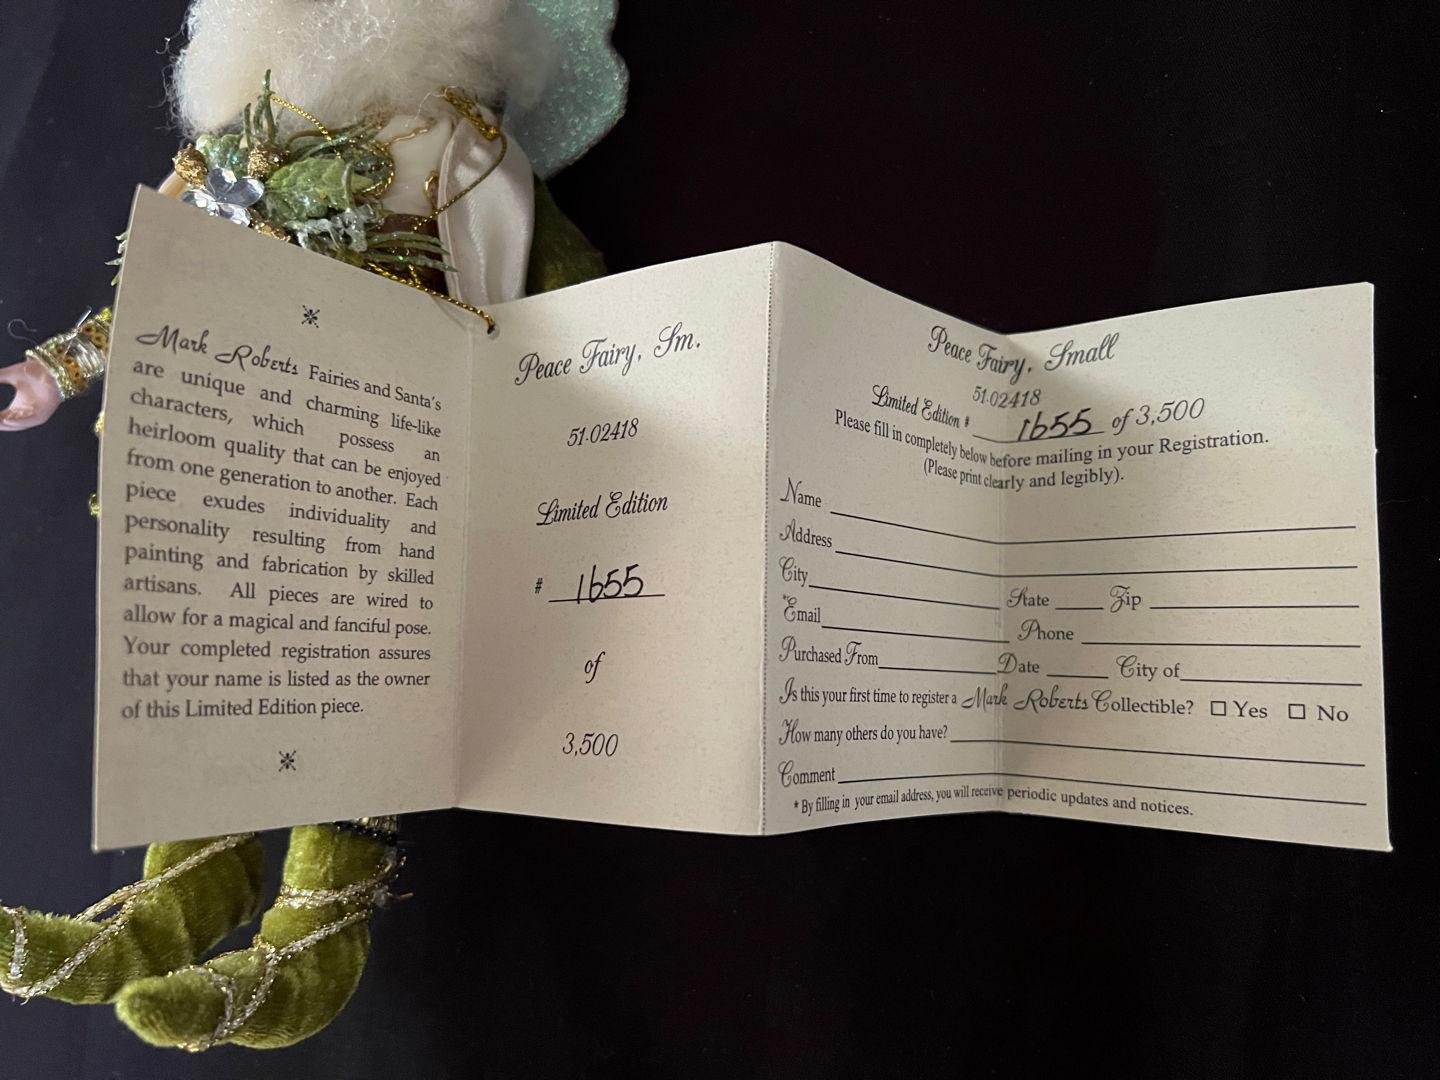 Mark Roberts Fairies and Santa's
are unique and charming life-like
characters, which possess an
heirloom quality that can be enjoyed
from one generation to another. Each
piece exudes individuality and
personality resulting from hand
painting and fabrication by skilled
artisans. All pieces are wired to
allow for a magical and fanciful pose.
Your completed registration assures
that your name is listed as the owner
of this Limited Edition piece.
Peace Fairy, Sm.
51.02418
Limited Edition
# 1655
of
3,500
Peace Fairy, Small
51.02418
Limited Edition # 1655 of 3,500
Please fill in completely below before mailing in your Registration.
(Please print clearly and legibly).
Name
Address
City State Zip
*Email Phone
Purchased From Date City of
Is this your first time to register a Mark Roberts Collectible? ☐ Yes ☐ No
How many others do you have?
Comment
* By filling in your email address, you will receive periodic updates and notices.